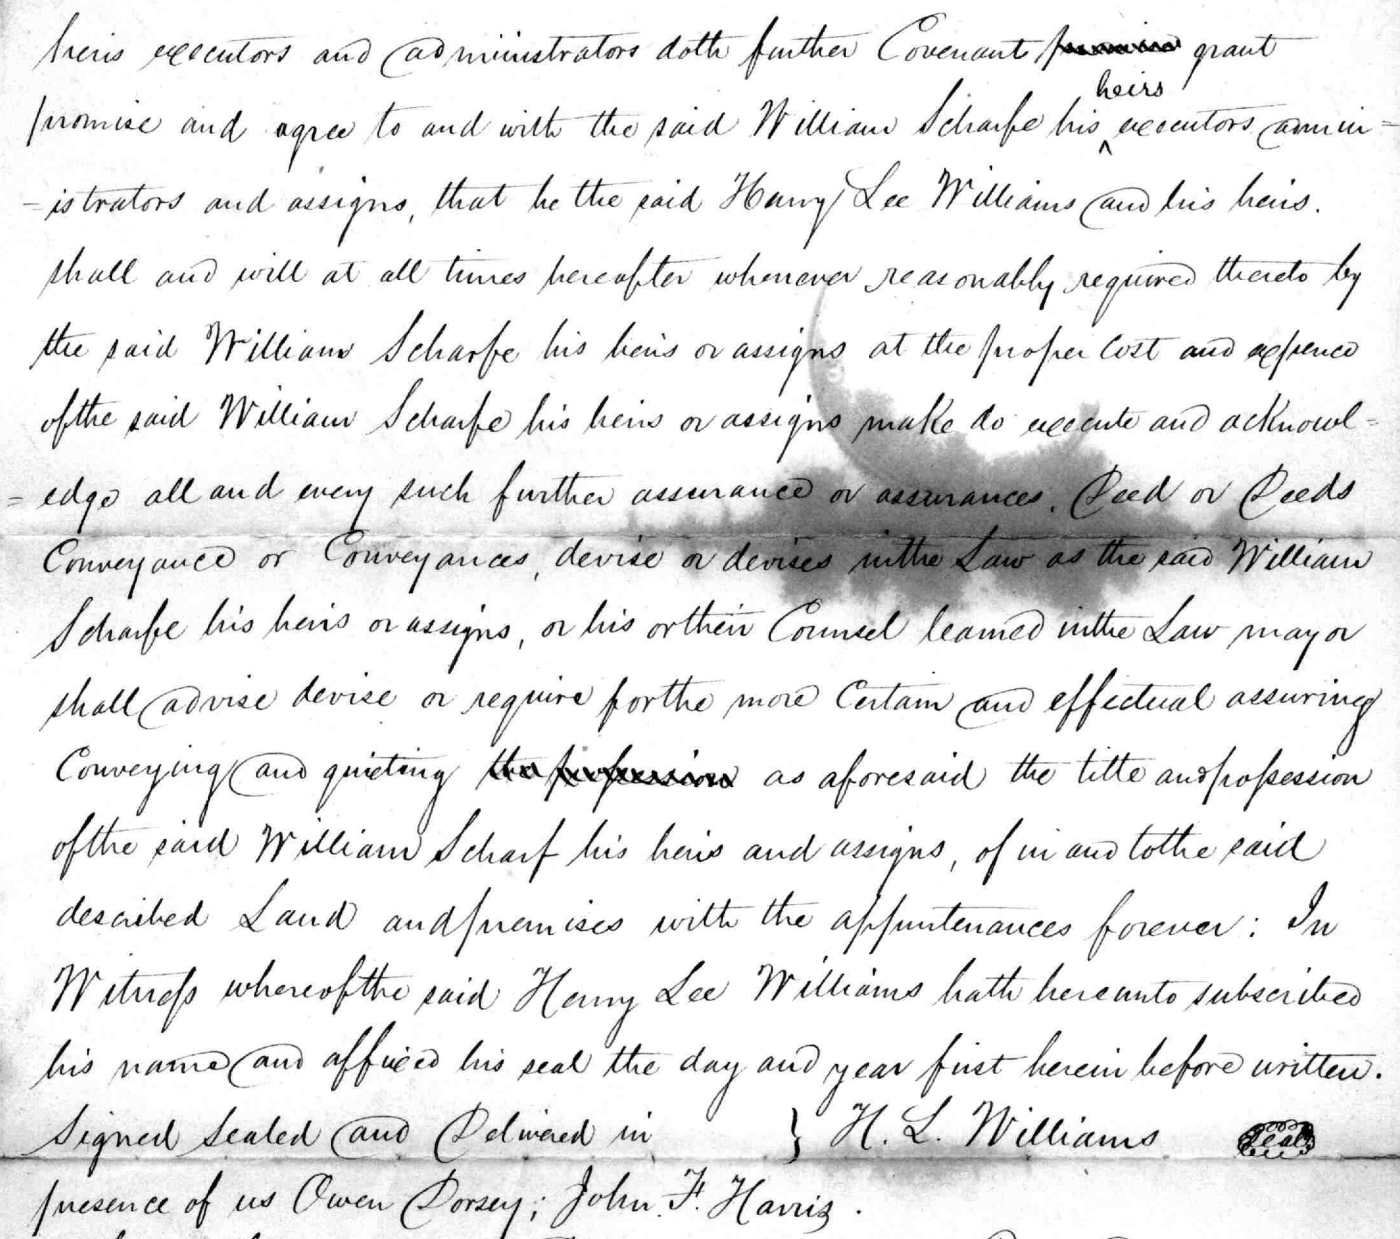 heirs executors and administrators doth further Covenant promise grant
heirs
promise and agree to and with the said William Scharfe his ^ executors admin=
=istrators and assigns, that he the said Henry Lee Williams and his heirs.
shall and will at all times hereafter whenever reasonably required thereto by
the said William Scharfe his heirs or assigns at the proper Cost and expence
of the said William Scharfe his heirs or assigns make do execute and acknowl=
=edge all and every such further assurance or assurances, Deed or Deeds
Conveyance or Conveyances, devise or devises in the Law as the said William
Scharfe his heirs or assigns, or his or their Counsel learned in the Law may or
shall advise devise or require for the more Certain and effectual assuring
Conveying and quieting the possession as aforesaid the title and possession
of the said William Scharf his heirs and assigns, of in and to the said
described Land and premises with the appurtenances forever: In
Witness whereof the said Henry Lee Williams hath hereunto subscribed
his name and affixed his seal the day and year first herein before written.
Signed Sealed and Delivered in } H. L. Williams Seal
presence of us Owen Dorsey; John. F. Harris.